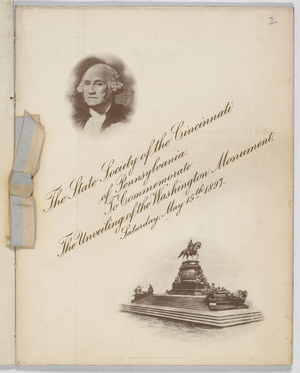 2
The State Society of the Cincinnati
of Pennsylvania.
To Commemorate
The Unveiling of the Washington Monument.
Saturday, May 15th 1897.